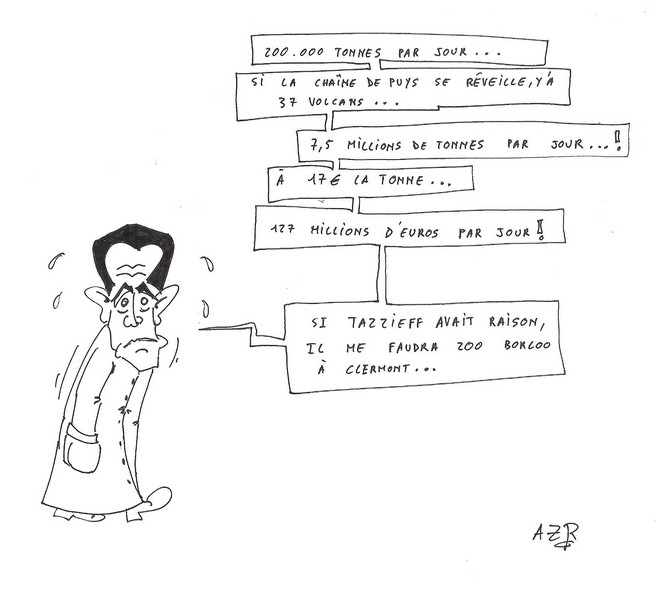 200.000 TONNES PAR JOUR...
SI LA CHAÎNE DE PUYS SE RÉVEILLE, Y'A
37 VOLCANS...
7,5 MILLIONS DE TONNES PAR JOUR...!
À 17€ LA TONNE...
127 MILLIONS D'EUROS PAR JOUR!
SI TAZZIEFF AVAIT RAISON,
IL ME FAUDRA 200 BORLOO
À CLERMONT...
AZR